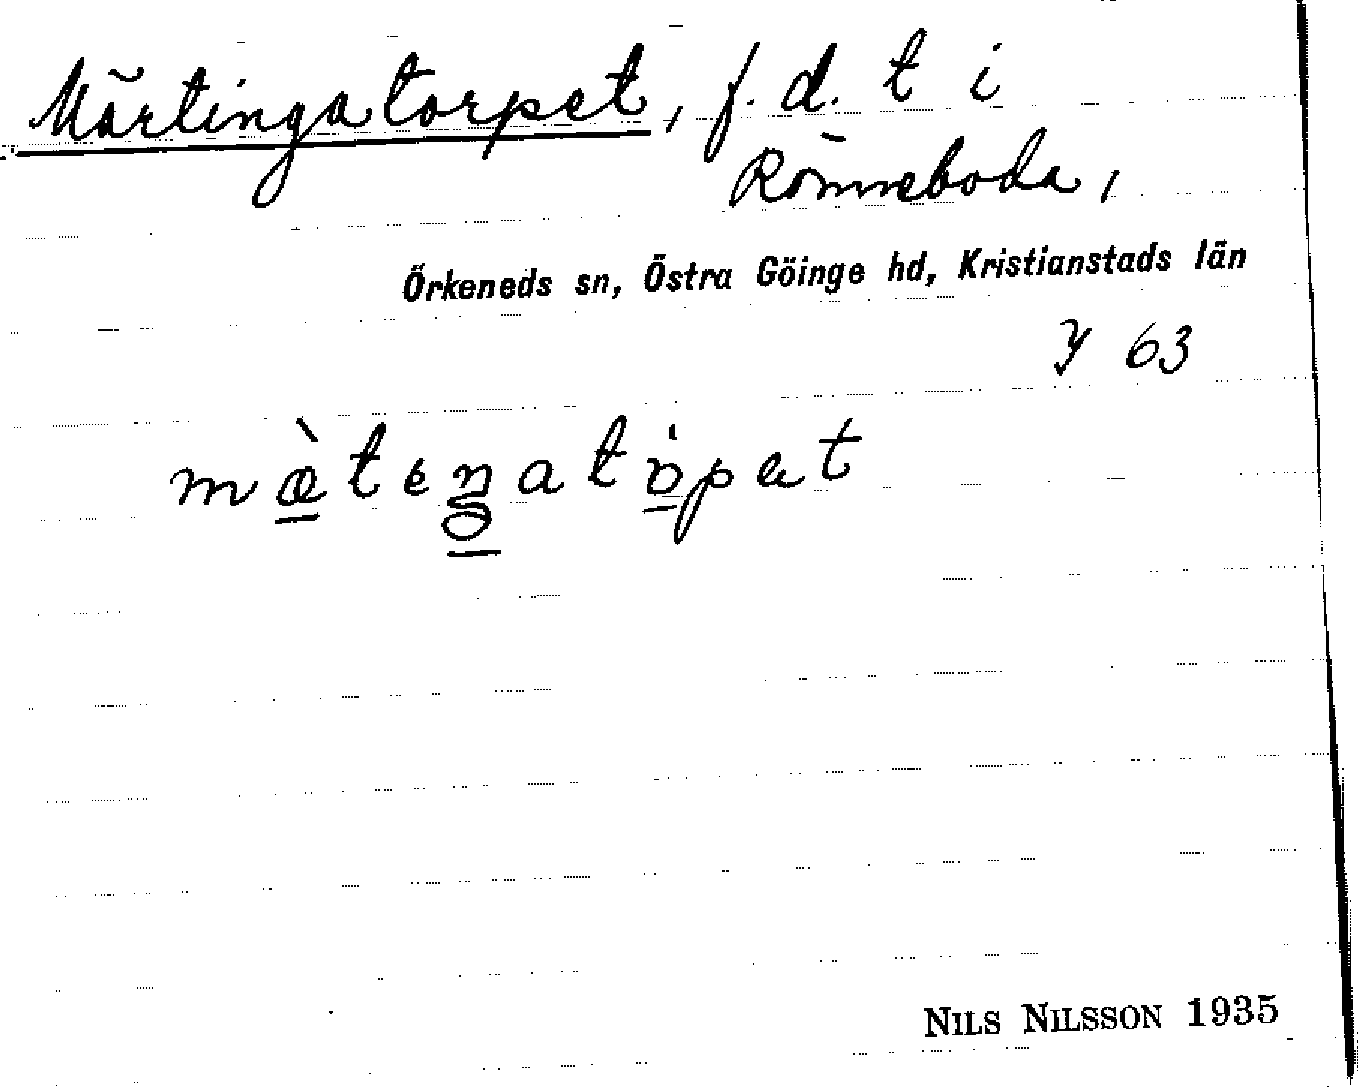 Märtingatorpet, f. d. t i
Rönneboda,
Örkeneds sn, Östra Göinge hd, Kristianstads län
Y 63
NILS NILSSON 1935